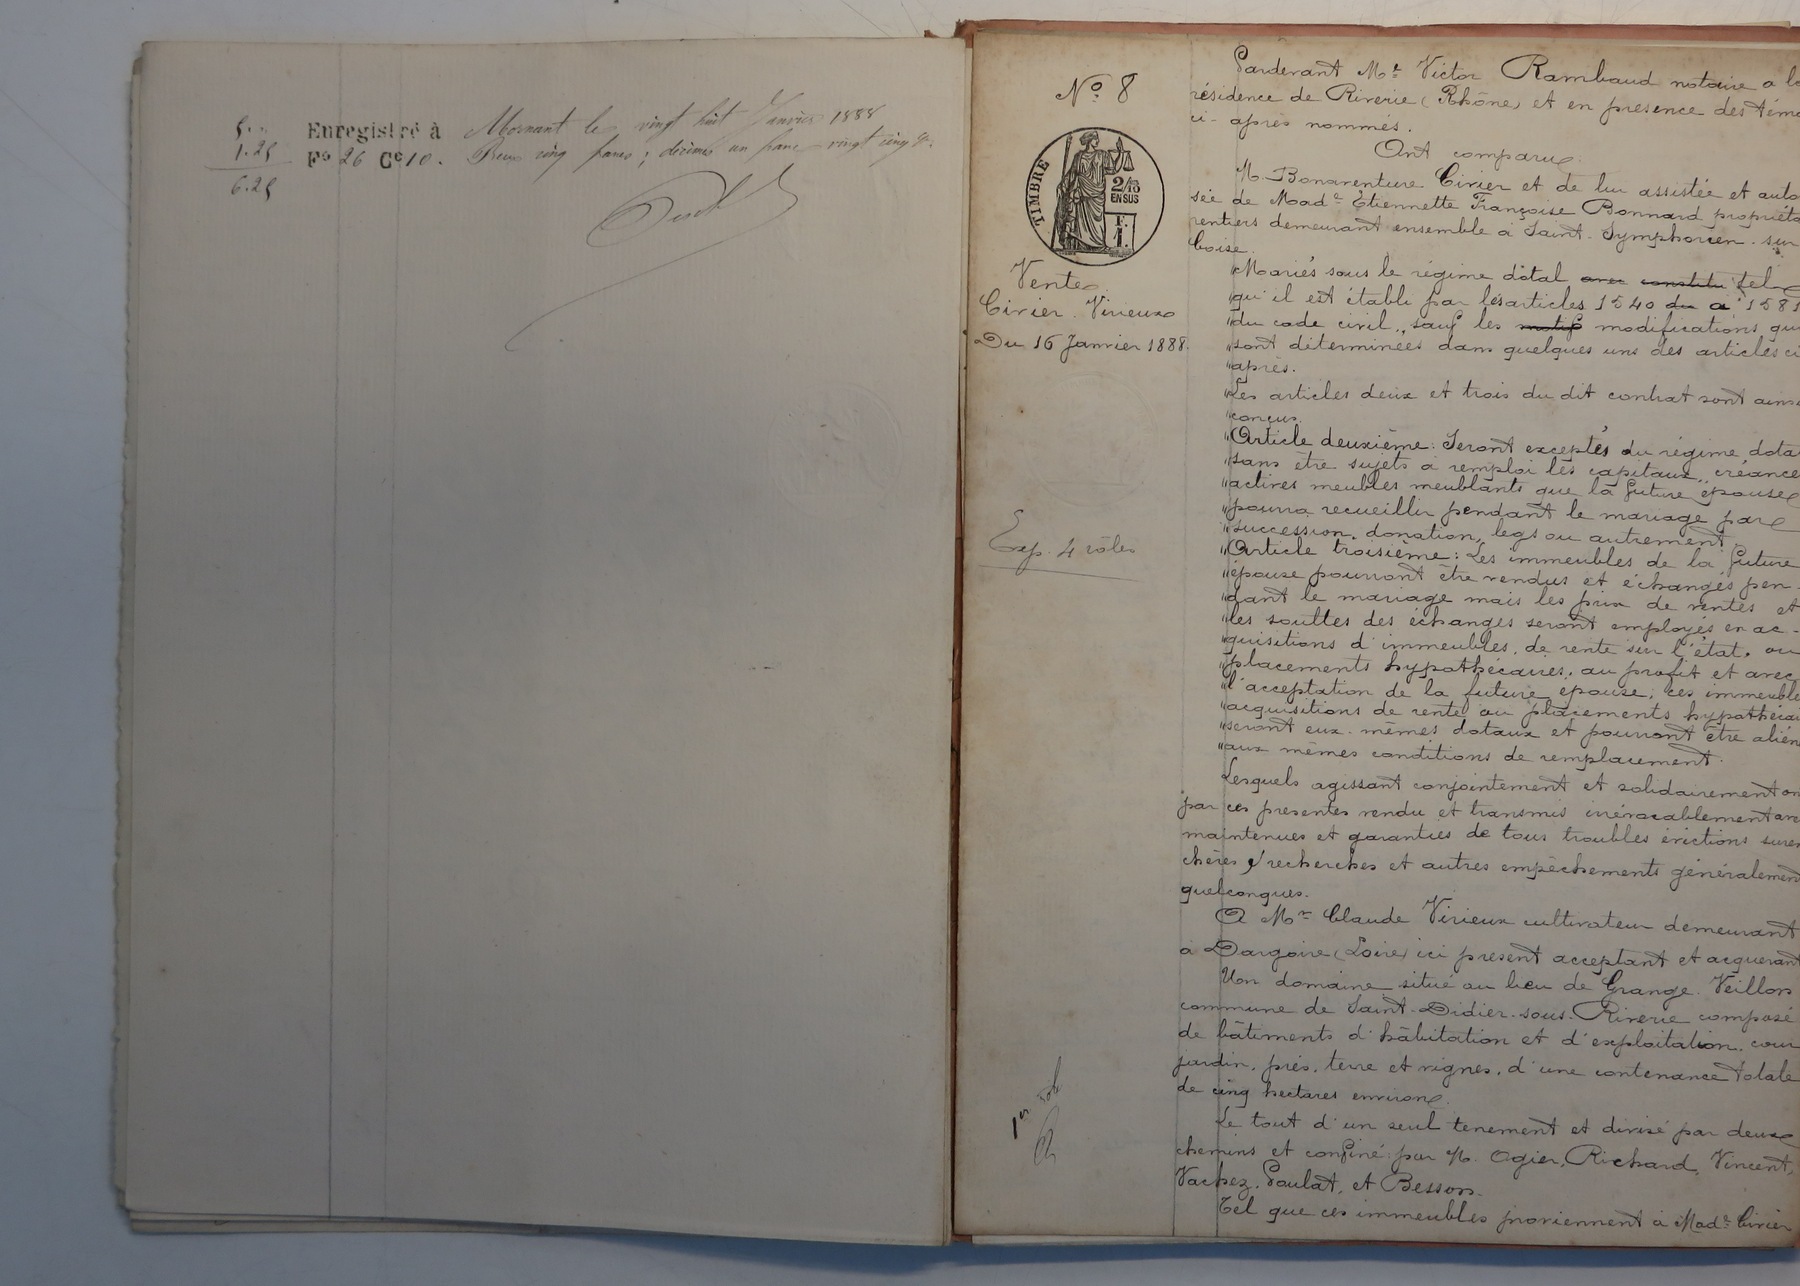 5. "
1.25
6.25
Enregistré à Mornant le vingt huit Janvier 1888
Fo 26 Ce 10. Reçu cinq francs ; décimes un franc vingt cinq c.
No 8
TIMBRE
2/10
EN SUS
F.
1.
Vente
Cirier. Virieux
Du 16 Janvier 1888.
Exp. 4 rôles
1er rôle
Pardevant Me Victor Rambaud notaire a la
résidence de Riverie (Rhône) et en présence des témo
ci-après nommés.
Ont comparu
M. Bonaventure Cirier et de lui assistée et auto
sée de Made Etiennette Françoise Bonnard propriéta
rentiers demeurant ensemble a Saint-Symphorien-sur
Coise.
"Mariés sous le régime dotal avec constitu tel
"qu'il est établi par les articles 1540 du a 1581
"du code civil, sauf les motif modifications qui
"sont déterminées dans quelques uns des articles ci
"après.
"Les articles deux et trois du dit contrat sont ainsi
"conçus.
"Article deuxième: Seront exceptés du régime dotal
"sans être sujets a remploi les capitaux, créances
"actives meubles meublants que la future épouse
"pourra recueillir pendant le mariage par
"succession, donation, legs ou autrement.
"Article troisième: Les immeubles de la future
"épouse pourront être vendus et échangés pen-
"dant le mariage mais les prix de ventes et
"les soultes des échanges seront employés en ac-
"quisitions d'immeubles, de rente sur l'état, ou
"placements hypothécaires, au profit et avec
"l'acceptation de la future épouse; ces immeuble
"acquisitions de rente ou placements hypothécai
"seront eux-mêmes dotaux et pourront être alién
"aux mêmes conditions de remplacement.
Lesquels agissant conjointement et solidairement on
par ces présentes vendu et transmis irrévocablement avec
maintenues et garanties de tous troubles évictions suren
chères, recherches et autres empêchements généralement
quelconques.
A Mr Claude Virieux cultivateur demeurant
à Dargoire (Loire) ici présent acceptant et acquerant
Un domaine situé au lieu de Grange-Veillon
commune de Saint-Didier-sous-Riverie composé
de bâtiments d'habitation et d'exploitation, cour
jardin, prés, terre et vignes, d'une contenance totale
de cinq hectares environ.
Le tout d'un seul tenement et divisé par deux
chemins et confiné par M. Ogier, Richard, Vincent,
Vachez, Paulat, et Besson.
Tel que ces immeubles proviennent à Made Cirier